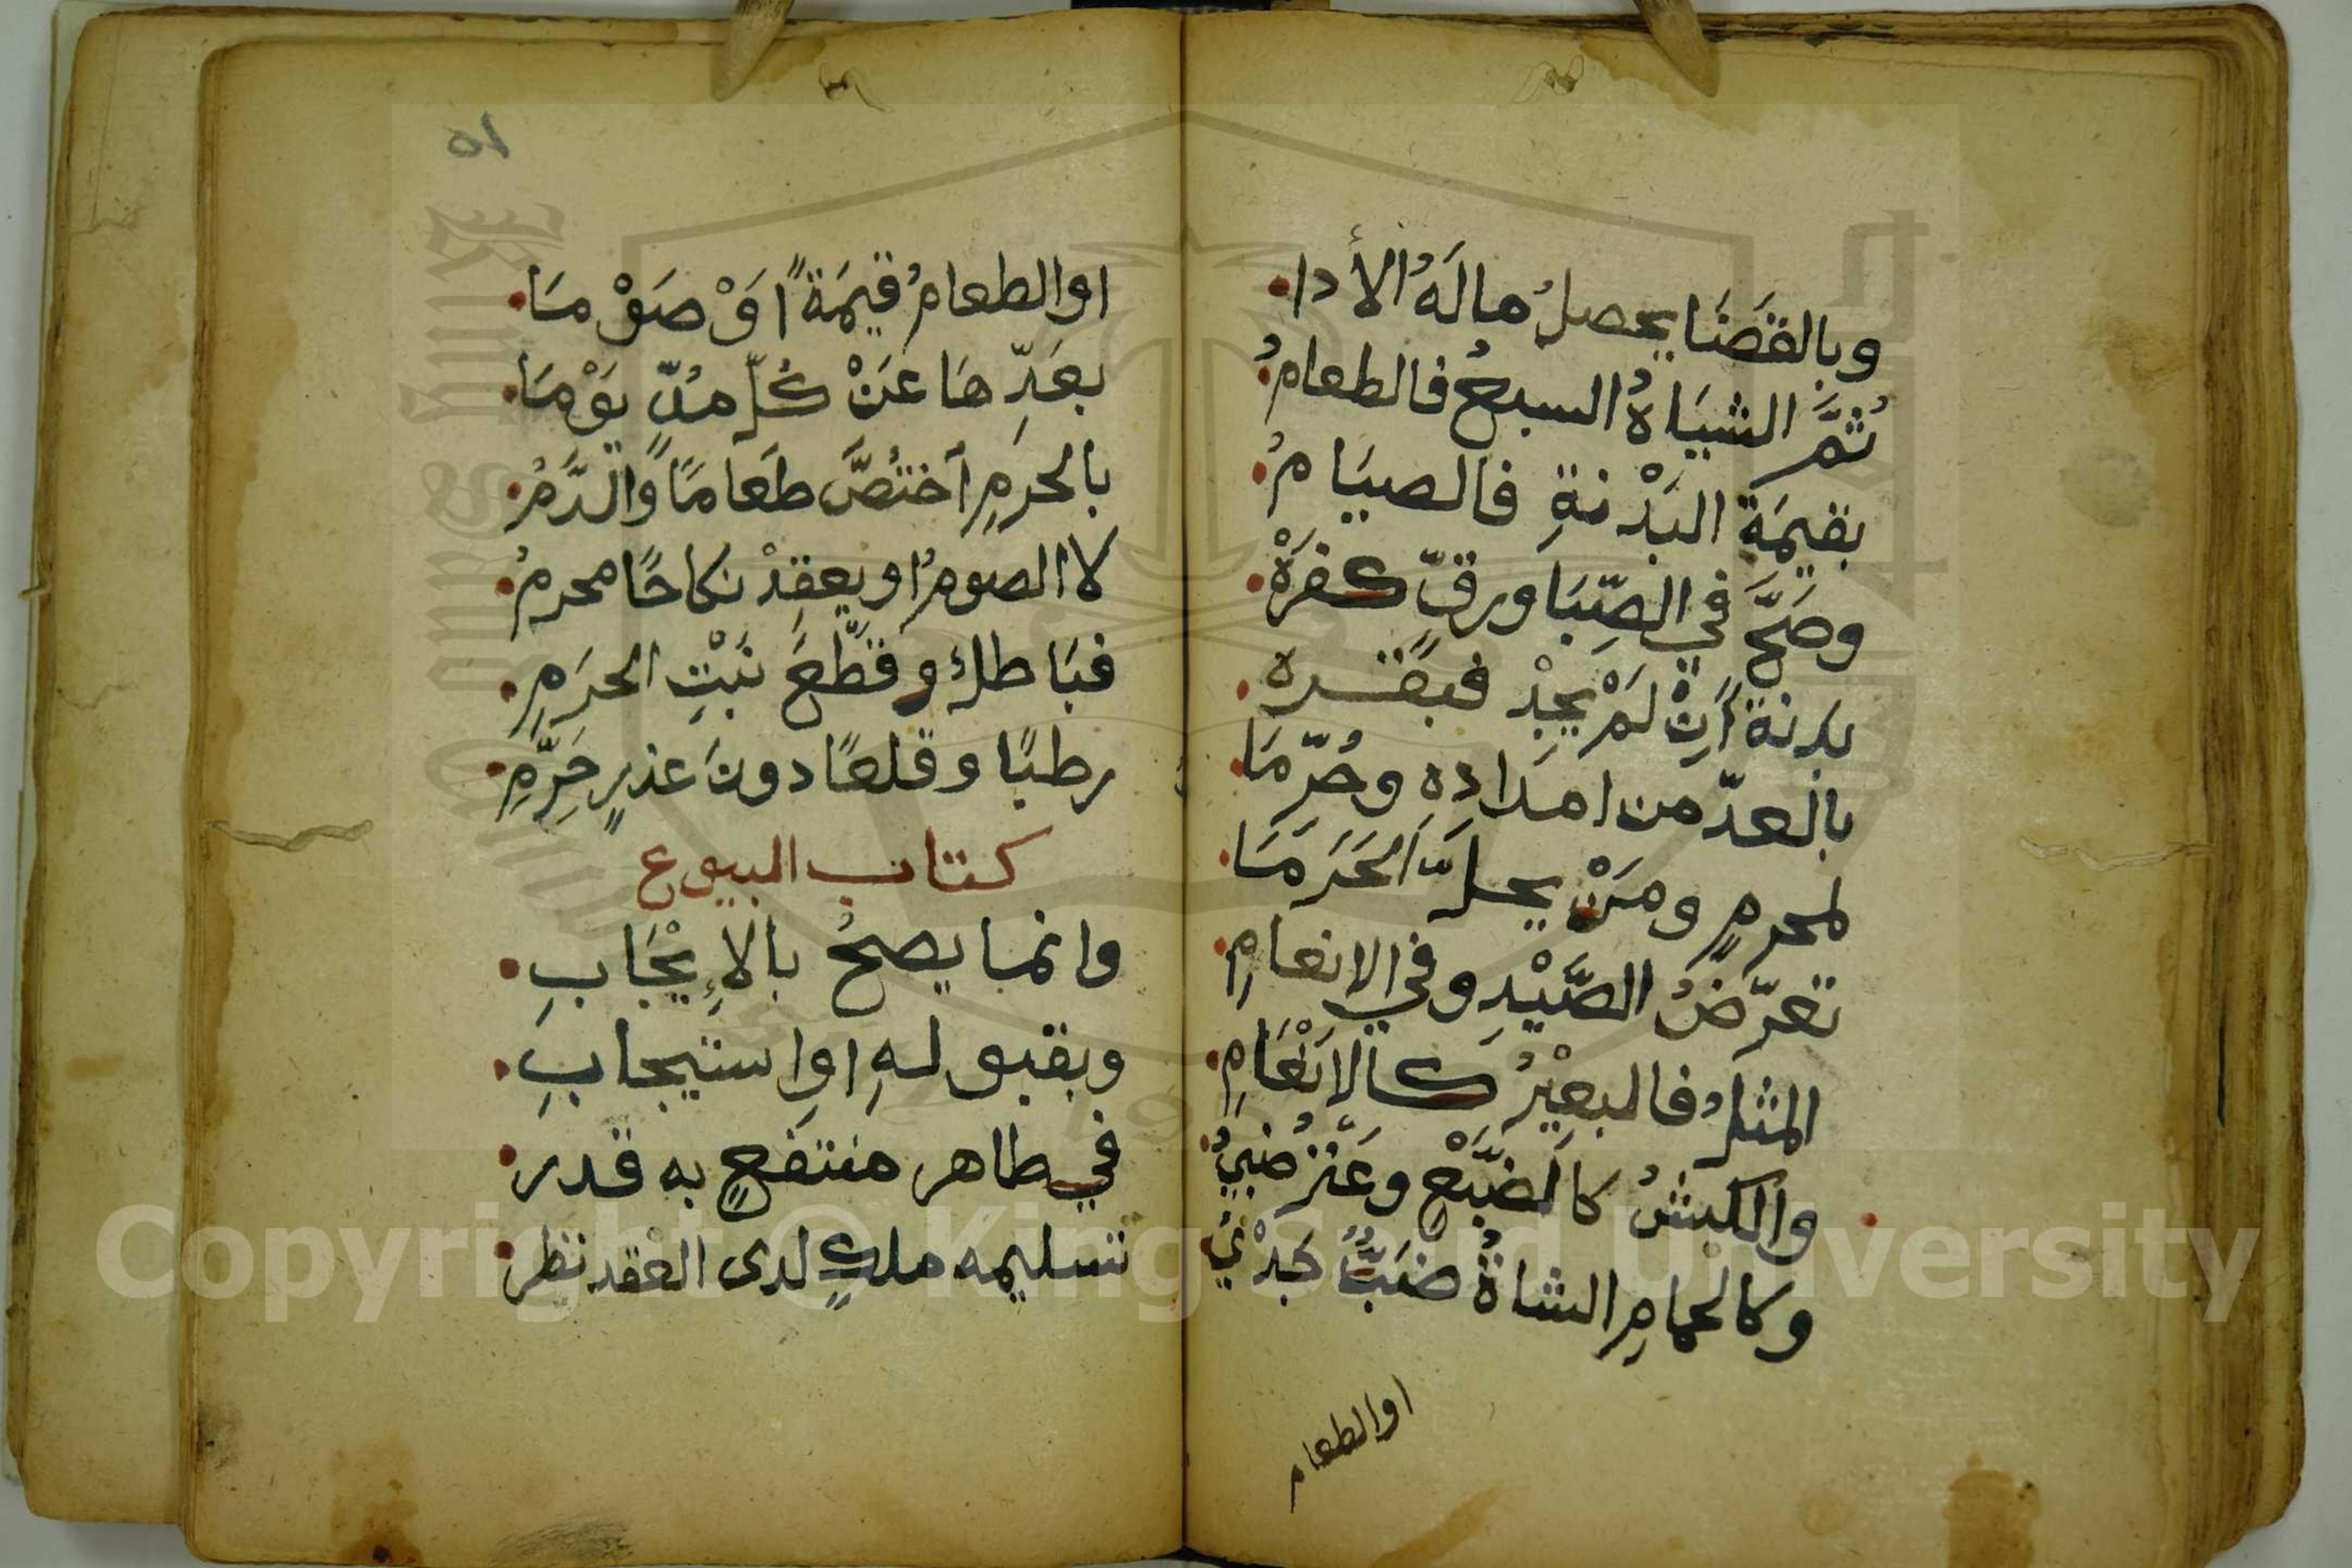 وبالقَضَا يحصلُ مالَهُ الأدا
ثمَّ الشيَاهُ السبعُ فالطعامُ
بقيمَةِ البَدْنةِ فالصيَامُ
وصَحَّ في الصِّبَا ورقٍّ كفرَةْ
بدنةً اَنْ لَمْ يجدْ فبقَسره
بالعدّ من امدادِهِ وحُرِّمَا
لمحرمٍ ومَنْ يحلَّ اَلحَرَمَا
تعرّضُ الصَّيْدِ وفي الانعامِ
المثلُ فالبعِيْرُ كالاَنْعَامِ
والكبشُ كالضَّبْعِ وعَنْزٌ ضبيُ
وكالحمامِ الشاةُ ضَبٌّ جَدْيُ
اوالطعام
٥١
اوالطعامُ قيمَةً اوْ صَوْمَا
بعَدِّهَا عَنْ كُلّ مُدٍّ يَوْمَا
بالحرَمِ اَختُصَّ طعَامًا وَالدَّمُ
لا الصومُ او يعقِدْ نكاحًا محرمُ
فبَاطلٌ وقطّعَ نَبْتِ الحرَمِ
رطبًا وقلعًا دونَ عذرٍ حَرِّمِ
كتاب البيوع
وانما يصحُ بالإِيْجَابِ
وبقبولهِ اوِاستيجابِ
في طاهر منتفعٍ به قدر
تسليمه ملكٍ لدى العْقد نظر
Copyright © King Saud University